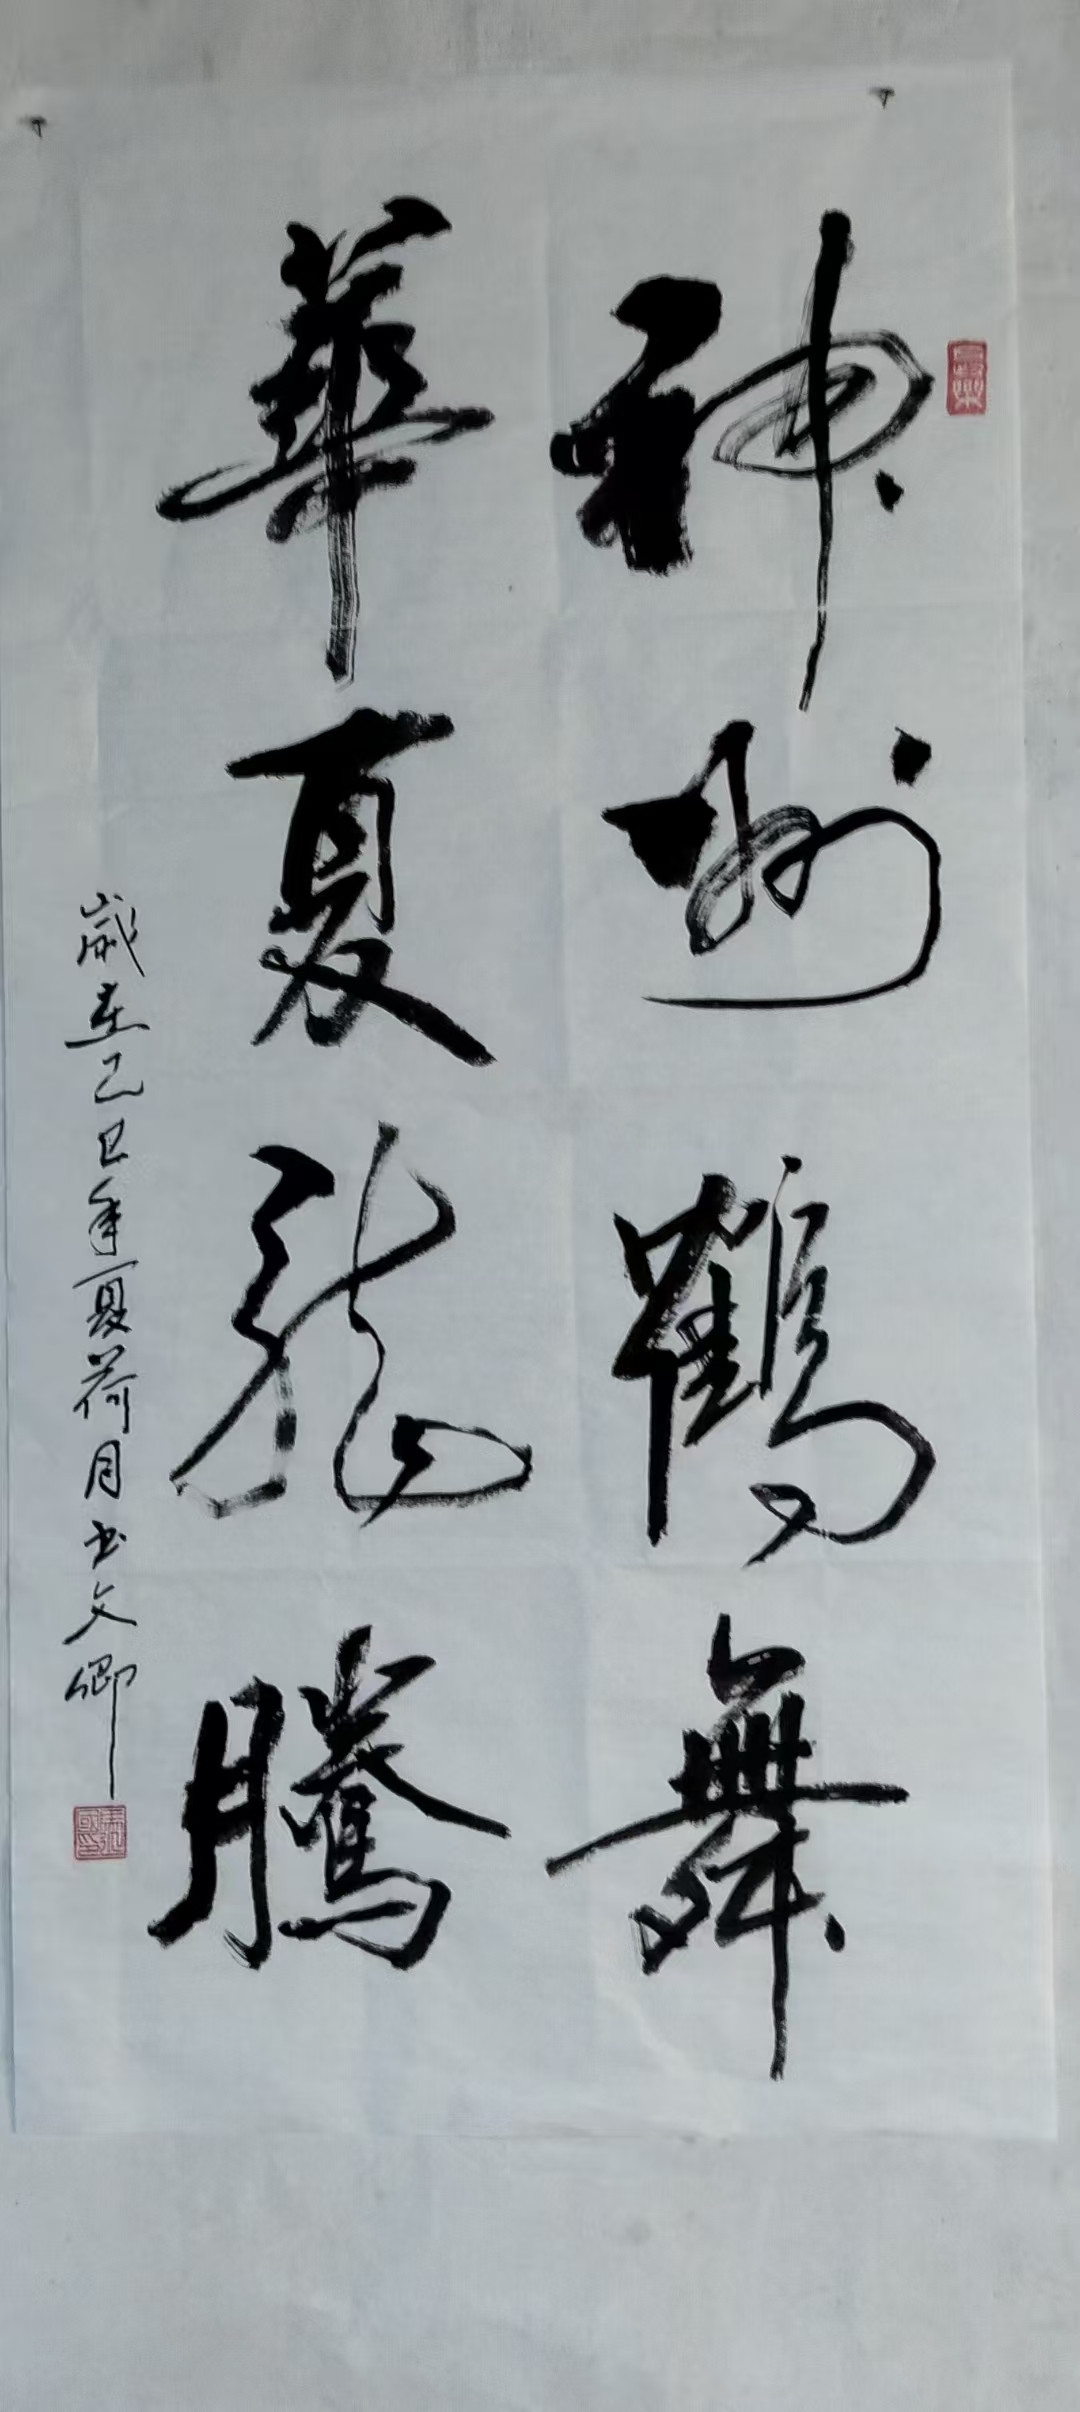 神州鶴舞
華夏龍騰
歲在乙巳年夏荷月书文卿